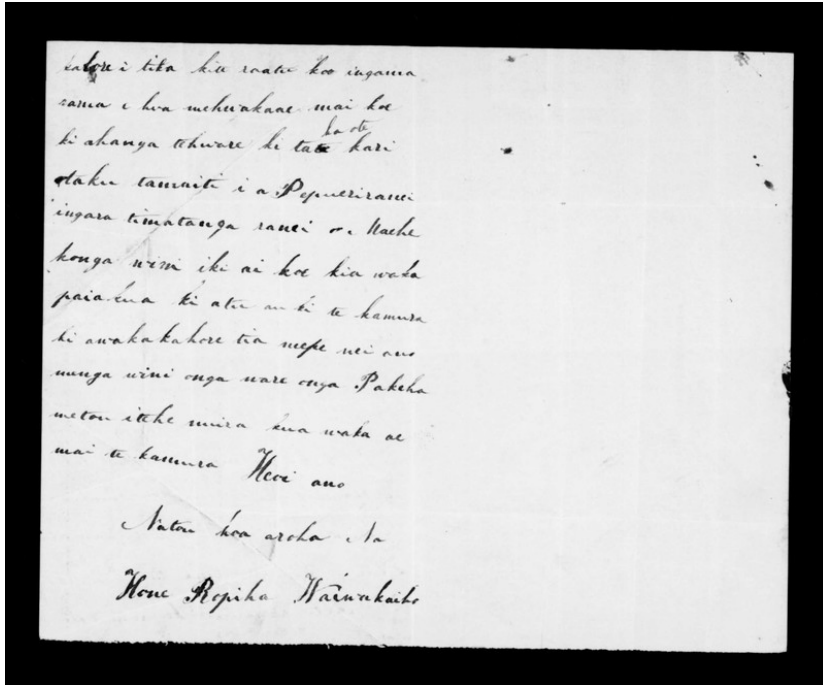 kahore i tika kite raatu koo ingama
rama e hoa mehwakaae mai koe
ki ahanga tehware ki ta ka ote kari
otaku tamaiti i a
ingara timatanga ranei o Maehe
konga wini iki ai koe kia waka
paia kua ki atu au ki te kamura
ki awaka kahore tia mepe nei ano
nunga wini onga ware onga Pakeha
metou itehe muira kua waka ae
mai te kamura Heoi ano
Natou hoa aroha Na
Hone Ropiha Waiwakaiho